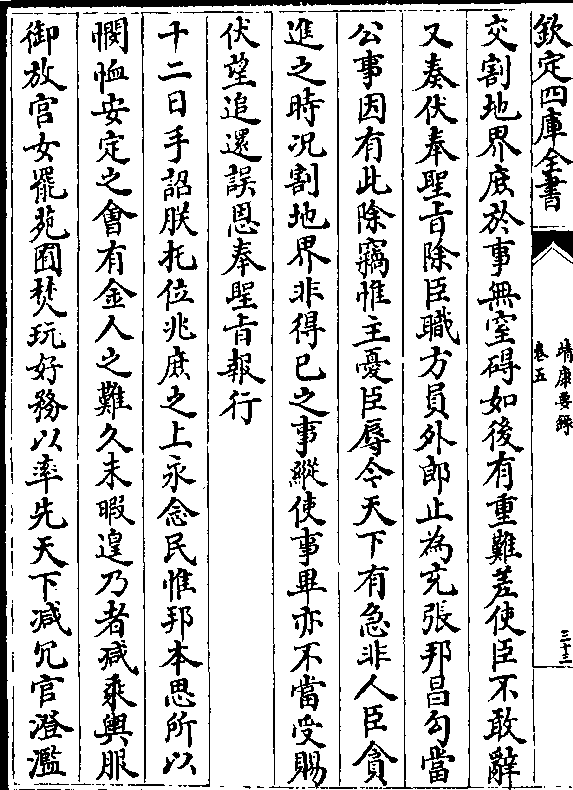 欽定四庫全書
靖康要錄
卷五
三十三
交割地界庶於事無窒碍如後有重難差使臣不敢辭
又奏伏奉聖旨除臣職方員外郎止為充張邦昌勾當
公事因有此除竊惟主憂臣辱今天下有急非人臣貪
進之時况割地界非得已之事縱使事畢亦不當受賜
伏望追還誤恩奉聖旨報行
十二日手詔朕托位兆庶之上永念民惟邦本思所以
憫恤安定之會有金人之難久未暇遑乃者减乘輿服
御放官女罷苑囿焚玩好務以率先天下减冗官澄濫